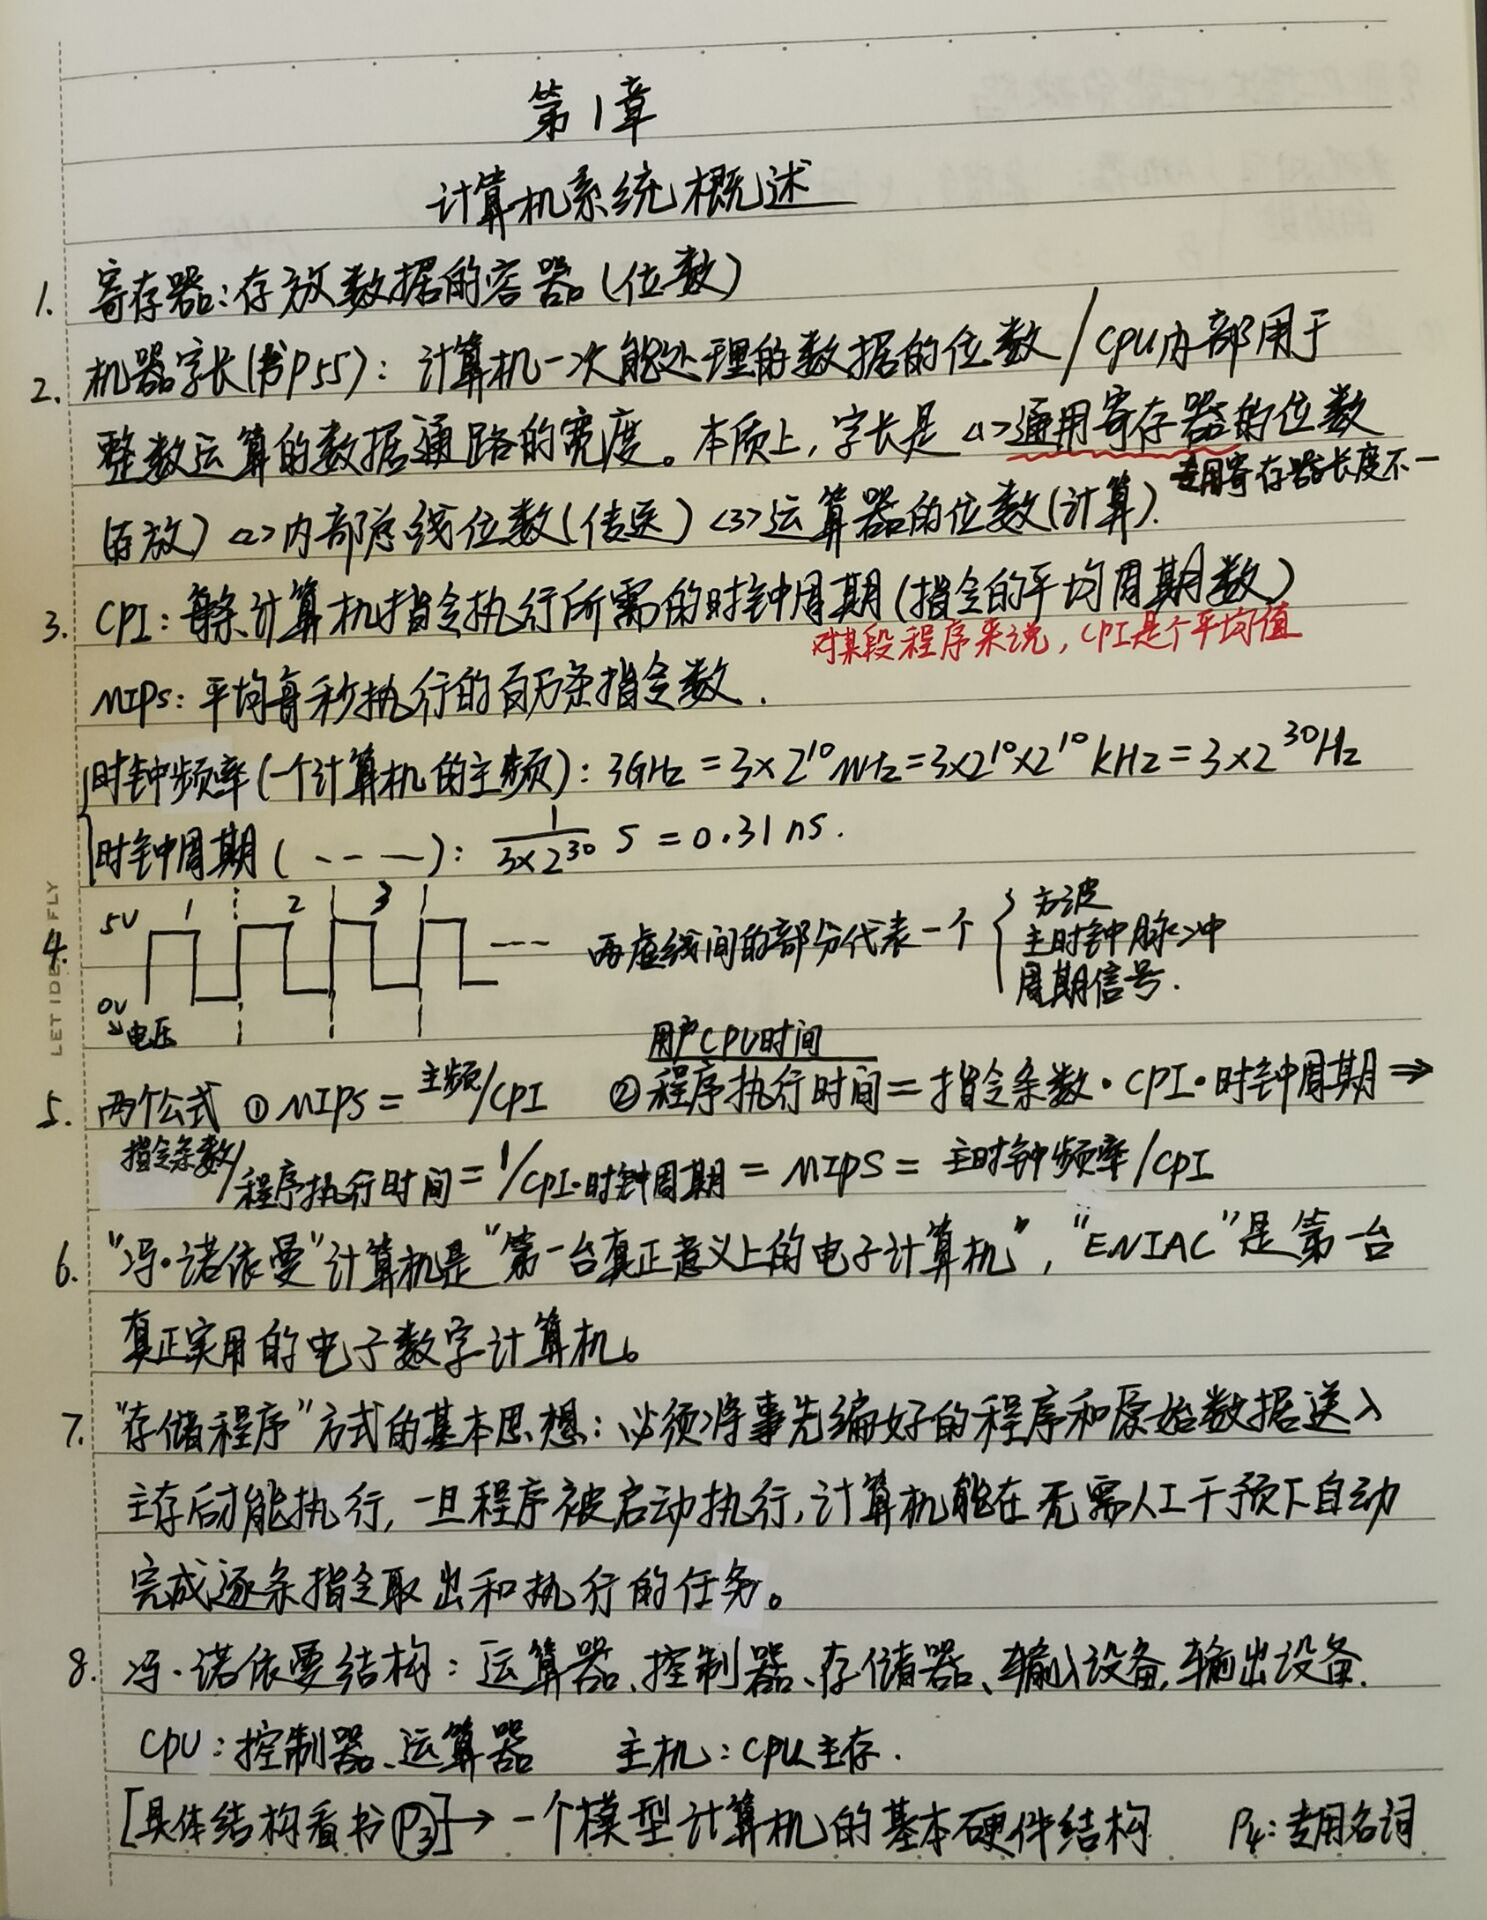 第1章
计算机系统概述
1. 寄存器:存放数据的容器(位数)
2. 机器字长(书P55): 计算机一次能处理的数据的位数/CPU内部用于
整数运算的数据通路的宽度。本质上,字长是<1>通用寄存器的位数
专用寄存器长度不一
(存放) <2>内部总线位数(传送) <3>运算器的位数(计算).
3. CPI: 每条计算机指令执行所需的时钟周期(指令的平均周期数)
对某段程序来说, CPI是个平均值
MIPS: 平均每秒执行的百万条指令数.
时钟频率(一个计算机的主频): 3GHz = 3×2¹⁰MHz=3×2¹⁰×2¹⁰KHz = 3×2³⁰Hz
时钟周期( - - — ): 1/(3×2³⁰) S = 0.31ns.
5V 1 2 3
4. --- 两虚线间的部分代表一个 { 方波
主时钟脉冲
周期信号.
0V
电压
用户CPU时间
5. 两个公式 ① MIPS = 主频/CPI ② 程序执行时间=指令条数·CPI·时钟周期 ⇒
指令条数/程序执行时间 = 1/CPI·时钟周期 = MIPS = 主时钟频率/CPI
6. "冯·诺依曼"计算机是"第一台真正意义上的电子计算机", "ENIAC"是第一台
真正实用的电子数字计算机。
7. "存储程序"方式的基本思想: 必须将事先编好的程序和原始数据送入
主存后才能执行, 一旦程序被启动执行, 计算机能在无需人工干预下自动
完成逐条指令取出和执行的任务。
8. 冯·诺依曼结构: 运算器、控制器、存储器、输入设备,输出设备.
CPU: 控制器、运算器 主机: CPU主存.
[具体结构看书P3]→ 一个模型计算机的基本硬件结构 P4: 专用名词
LET IDE FLY